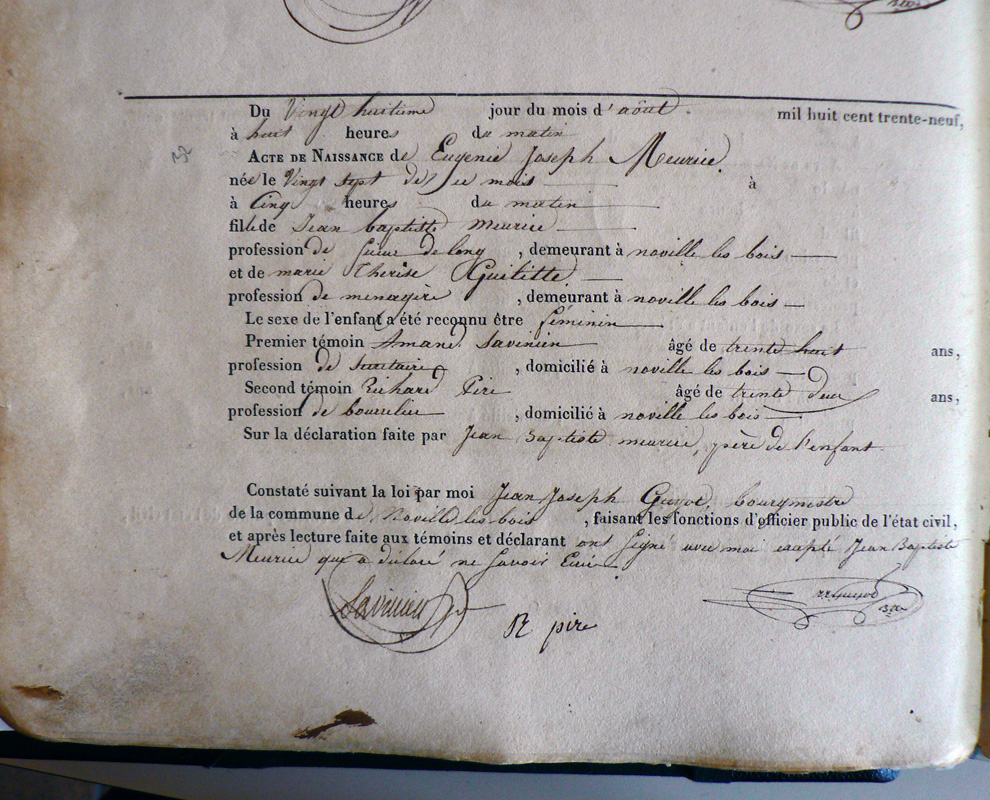 Du Vingt huitieme jour du mois d'août mil huit cent trente-neuf,
à huit heures du matin
ACTE DE NAISSANCE de Eugenie Joseph Meurice
née le Vingt sept de ce mois à
à Cinq heures du matin
fille de Jean baptiste meurice
profession de Scieur de long, demeurant à noville les bois
et de marie Thérèse Guilitte
profession de menagère, demeurant à noville les bois
Le sexe de l'enfant a été reconnu être féminin
Premier témoin Amand Savinien âgé de trente huit ans,
profession de Secrétaire, domicilié à noville les bois
Second témoin Richard Pire âgé de trente deux ans,
profession de bourrelier, domicilié à noville les bois
Sur la déclaration faite par Jean Baptiste meurice, père de l'enfant
Constaté suivant la loi par moi Jean Joseph Guyot, bourgmestre
de la commune de Noville les bois, faisant les fonctions d'officier public de l'état civil,
et après lecture faite aux témoins et déclarant ont Signé avec moi excepté Jean Baptiste
Meurice qui a déclaré ne Savoir Ecrire
Savinien
R pire